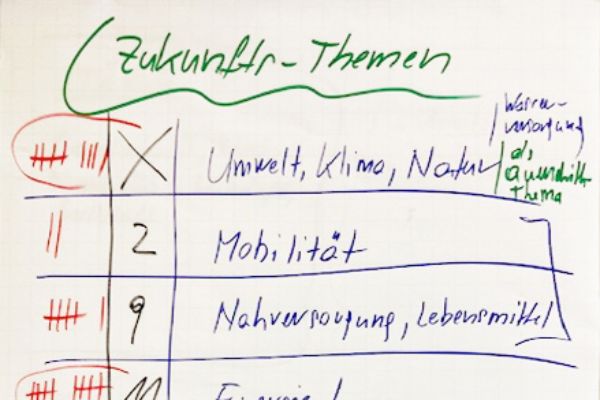 Zukunfts-Themen
Wasser-
versorgung
als
Querschnitt
Thema
X Umwelt, Klima, Natur
2 Mobilität
9 Nahversorgung, Lebensmittel
11